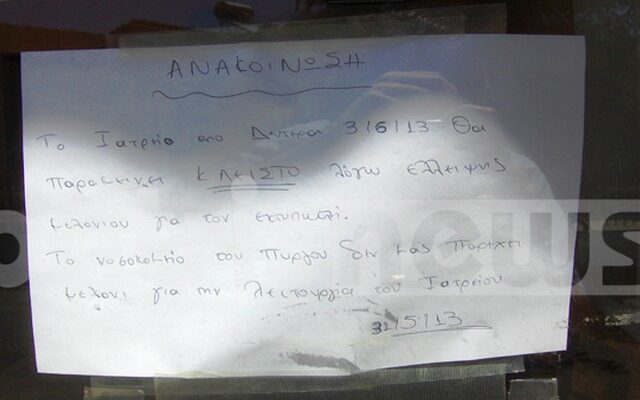 ΑΝΑΚΟΙΝΩΣΗ
Το Ιατρείο απο Δευτερα 3/6/13 Θα
παραμεινει ΚΛΕΙΣΤΟ λόγω ελλειψης
μελανιου για τον εκτυπωτή.
Το νοσοκομείο του Πυργου δεν μας παρεχει
μελανι για την λειτουργία του Ιατρείου
31/5/13
news